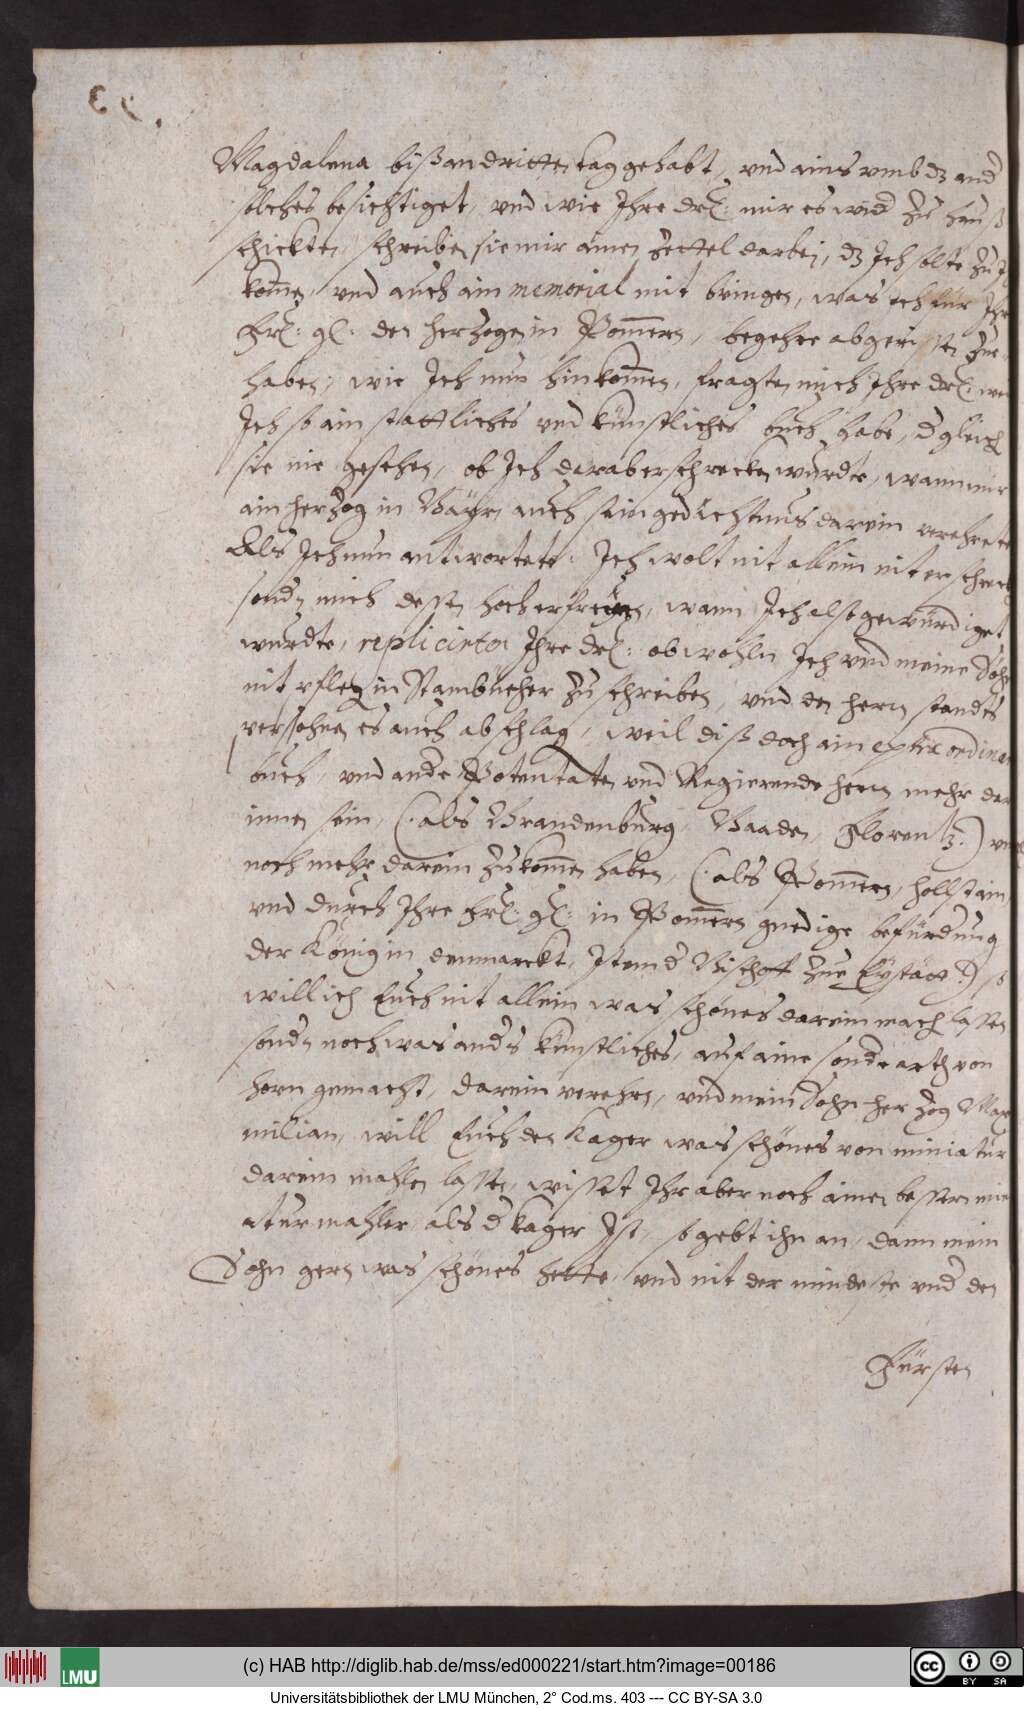 Magdalena biß an dritten tag gehabt, vnd ains vmb dz and
solches besichtiget, vnd wie Ihre drl: mir es wid zu hauß
schickten, schreiben sie mir ainen zettel darbei, dz Ich solte zu
kommen, vnd auch ain memorial mit bringen, was Ich für Ihr
Frl: gl: den herzogen in Pommern, begehre abgerissen zue
haben, wie Ich nun hinkommen, fragten mich Ihre drl: weil
Ich so ain stattliches vnd künstliches buch habe, d gleich
sie nie gesehen, ob Ich darab erschrecken wurdte, wann mir
ain herzog in Bayrn auch sein gedächtnus darein verehrete
Als Ich nun antwortete: Ich wolt nit allein nit erschreck
sondn mich dessen hoch erfreyen, wann Ich also gewürdiget
wurdte, replicirten Ihre drl: obwohln Ich vnd meine Söhn
nit pflegen in Stambücher zu schreiben, vnd den herrn standts
persohnen es auch abschlag, weil diß doch ain extra ordinari
buch, vnd andre Potentaten vnd Regierende herrn mehr dar
innen sein, (: als Brandenburg, Baaden, Florentz :) vnd
noch mehr darein zukommen haben, (: als Pommern, hollstain,
vnd durch Ihre Frl: gl: in Pommern gnedige befürdung
der König in denmarckt, Item d Bischoff zue Eystätt :) so
will ich Euch nit allein was schönes darein machen lassen
sondn noch was ands künstliches, auf aine sondre arth von
horn gemacht, darein verehrn, vnd mein Sohn herzog Maxi
milian, will Euch den Kager was schönes von miniatur
darein mahlen lassen, wisset Ihr aber noch ainen bessern mini
atur mahler als d Kager Ist, so gebt ihn an, dann mein
Sohn gern was schönes hette, vnd nit der mindeste vnd den
Fürsten
(c) HAB http://diglib.hab.de/mss/ed000221/start.htm?image=00186
LMU
cc BY SA
Universitätsbibliothek der LMU München, 2° Cod.ms. 403 --- CC BY-SA 3.0